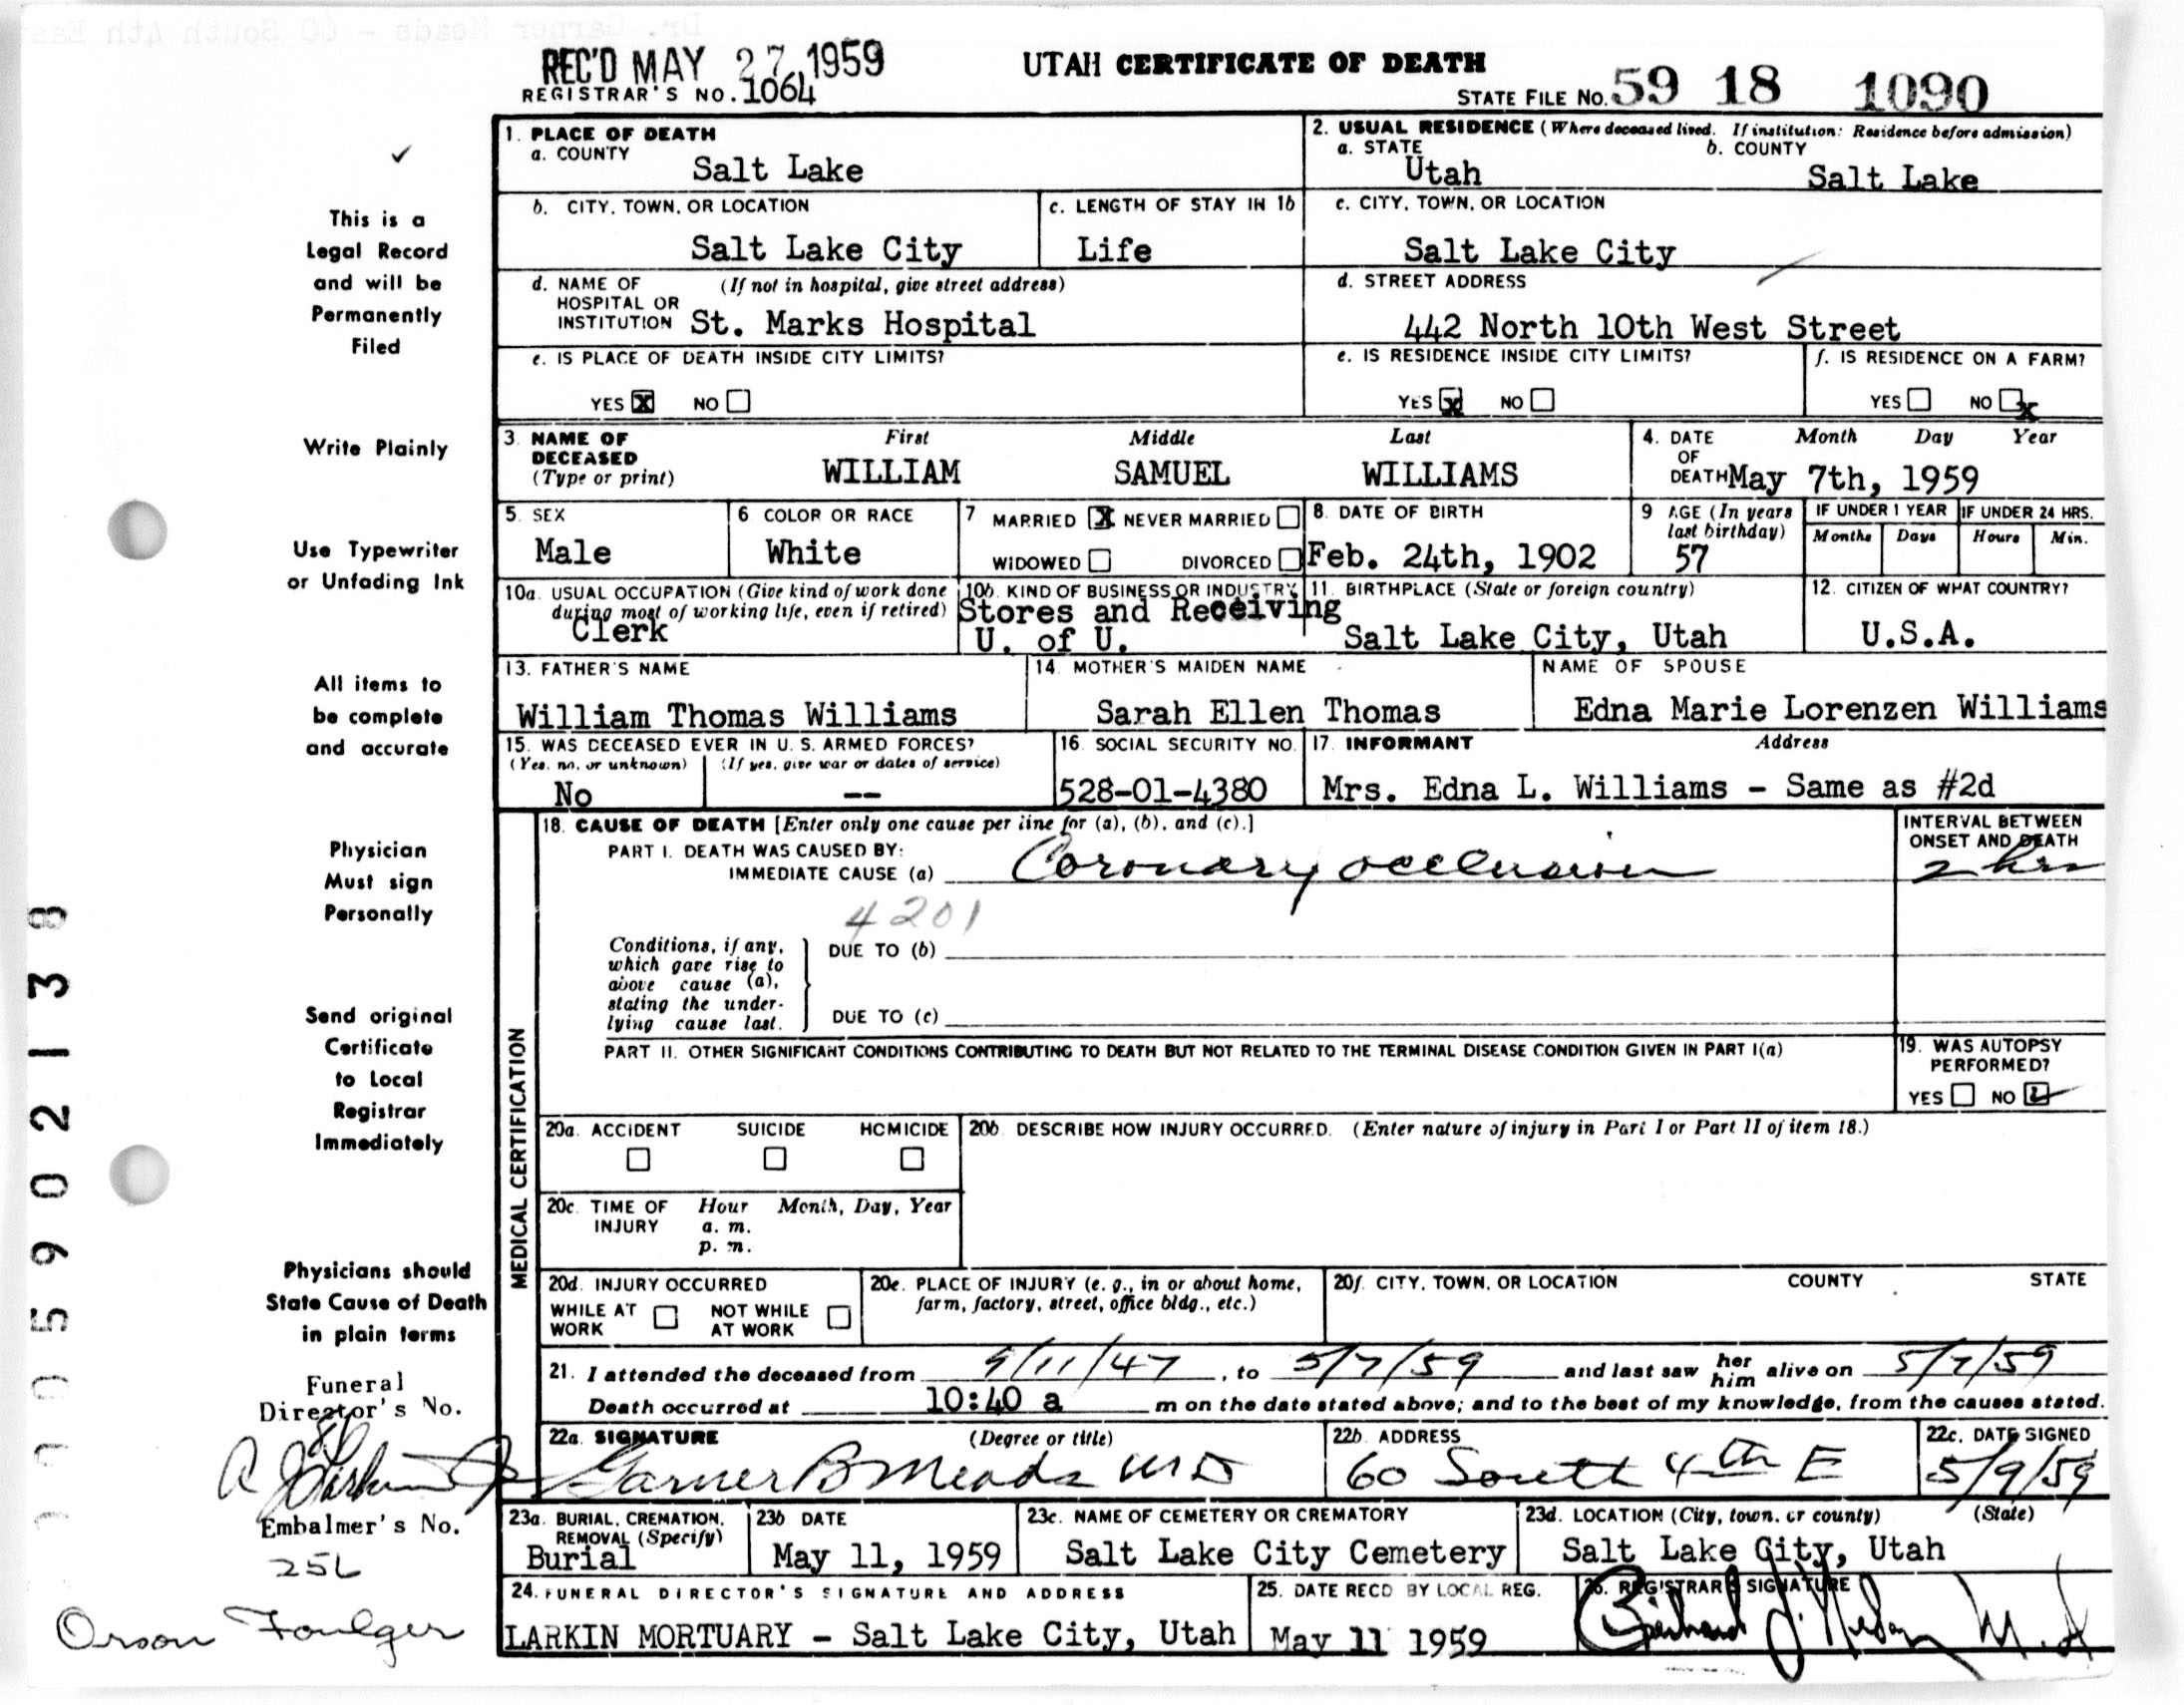 REC'D MAY 27 1959
REGISTRAR'S NO. 1064
UTAH CERTIFICATE OF DEATH
STATE FILE NO. 59 18 1090
This is a
Legal Record
and will be
Permanently
Filed
Write Plainly
Use Typewriter
or Unfading Ink
All items to
be complete
and accurate
Physician
Must sign
Personally
Send original
Certificate
to Local
Registrar
Immediately
Physicians should
State Cause of Death
in plain terms
Funeral
Director's No.
Embalmer's No.
256
Orson Foulger
1. PLACE OF DEATH
a. COUNTY
Salt Lake
2. USUAL RESIDENCE (Where deceased lived. If institution: Residence before admission)
a. STATE b. COUNTY
Utah Salt Lake
b. CITY, TOWN, OR LOCATION
Salt Lake City
c. LENGTH OF STAY IN 1b
Life
c. CITY, TOWN, OR LOCATION
Salt Lake City
d. NAME OF (If not in hospital, give street address)
HOSPITAL OR
INSTITUTION St. Marks Hospital
d. STREET ADDRESS
442 North 10th West Street
e. IS PLACE OF DEATH INSIDE CITY LIMITS?
YES X NO
e. IS RESIDENCE INSIDE CITY LIMITS?
YES X NO
f. IS RESIDENCE ON A FARM?
YES NO X
3. NAME OF First Middle Last
DECEASED
(Type or print) WILLIAM SAMUEL WILLIAMS
4. DATE Month Day Year
OF
DEATH May 7th, 1959
5. SEX
Male
6 COLOR OR RACE
White
7 MARRIED X NEVER MARRIED
WIDOWED DIVORCED
8. DATE OF BIRTH
Feb. 24th, 1902
9 AGE (In years
last birthday)
57
IF UNDER 1 YEAR IF UNDER 24 HRS.
Months Days Hours Min.
10a. USUAL OCCUPATION (Give kind of work done
during most of working life, even if retired)
Clerk
10b. KIND OF BUSINESS OR INDUSTRY
Stores and Receiving
U. of U.
11. BIRTHPLACE (State or foreign country)
Salt Lake City, Utah
12. CITIZEN OF WHAT COUNTRY?
U.S.A.
13. FATHER'S NAME
William Thomas Williams
14. MOTHER'S MAIDEN NAME
Sarah Ellen Thomas
NAME OF SPOUSE
Edna Marie Lorenzen Williams
15. WAS DECEASED EVER IN U. S. ARMED FORCES?
(Yes, no, or unknown) (If yes, give war or dates of service)
No --
16. SOCIAL SECURITY NO.
528-01-4380
17. INFORMANT Address
Mrs. Edna L. Williams - Same as #2d
MEDICAL CERTIFICATION
18. CAUSE OF DEATH [Enter only one cause per line for (a), (b), and (c).]
PART I. DEATH WAS CAUSED BY:
IMMEDIATE CAUSE (a) Coronary occlusion
INTERVAL BETWEEN
ONSET AND DEATH
2 hrs
4201
Conditions, if any,
which gave rise to
above cause (a),
stating the under-
lying cause last.
DUE TO (b)
DUE TO (c)
PART II. OTHER SIGNIFICANT CONDITIONS CONTRIBUTING TO DEATH BUT NOT RELATED TO THE TERMINAL DISEASE CONDITION GIVEN IN PART I(a)
19. WAS AUTOPSY
PERFORMED?
YES NO
20a. ACCIDENT SUICIDE HOMICIDE
20b. DESCRIBE HOW INJURY OCCURRED. (Enter nature of injury in Part I or Part II of item 18.)
20c. TIME OF Hour Month, Day, Year
INJURY a. m.
p. m.
20d. INJURY OCCURRED
WHILE AT NOT WHILE
WORK AT WORK
20e. PLACE OF INJURY (e. g., in or about home,
farm, factory, street, office bldg., etc.)
20f. CITY, TOWN, OR LOCATION COUNTY STATE
21. I attended the deceased from 9/11/47, to 5/7/59 and last saw her him alive on 5/7/59
Death occurred at 10:40 a m on the date stated above; and to the best of my knowledge, from the causes stated.
22a. SIGNATURE (Degree or title)
Garner B Meads MD
22b. ADDRESS
60 South 4th E
22c. DATE SIGNED
5/9/59
23a. BURIAL, CREMATION,
REMOVAL (Specify)
Burial
23b DATE
May 11, 1959
23c. NAME OF CEMETERY OR CREMATORY
Salt Lake City Cemetery
23d. LOCATION (City, town, or county) (State)
Salt Lake City, Utah
24. FUNERAL DIRECTOR'S SIGNATURE AND ADDRESS
LARKIN MORTUARY - Salt Lake City, Utah
25. DATE RECD BY LOCAL REG.
May 11 1959
26. REGISTRAR'S SIGNATURE